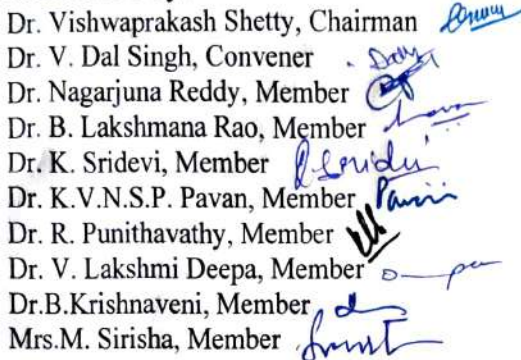 Dr. Vishwaprakash Shetty, Chairman
Dr. V. Dal Singh, Convener
Dr. Nagarjuna Reddy, Member
Dr. B. Lakshmana Rao, Member
Dr. K. Sridevi, Member
Dr. K.V.N.S.P. Pavan, Member
Dr. R. Punithavathy, Member
Dr. V. Lakshmi Deepa, Member
Dr.B.Krishnaveni, Member
Mrs.M. Sirisha, Member